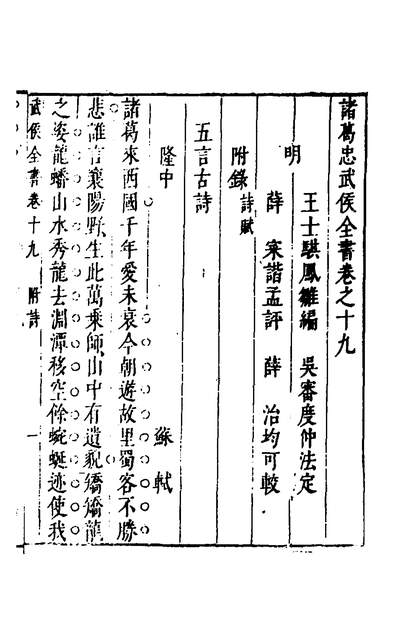 諸葛忠武侯全書卷之十九
王士騏鳳雛編 吳審度仲法定
明
薛寀諧孟評 薛治均可較
附錄 詩賦
五言古詩
隆中 蘇軾
諸葛來西國千年愛未衰今朝遊故里蜀客不勝
悲誰言襄陽野生此萬乘師山中有遺貌矯矯龍
之姿龍蟠山水秀龍去淵潭移空餘蜿蜒迹使我
武侯全書卷十九 附詩 一